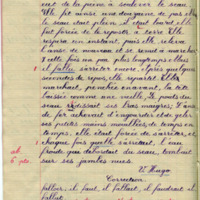 de la peine à soulever le seau.
Elle fit ainsi une douzaine de pas, elle
le seau était plein, il était lourd, elle
fut forcée de le reposer à terre. Elle
respira un instant, puis elle enleva
l'anse de nouveau et se remit à marcher
cette fois un peu plus longtemps. Mais
il fallut s'arrêter encore, après quelques
secondes de repos, elle repartit. Elle
marchait, penchée en avant, la tête
baissée comme une vieille. Le poids du
seau raidissait ses bras maigres. L'anse
de fer achevait d'engourdir et de geler
ses petites mains mouillées, de temps en
temps, elle était forcée de s'arrêter, et
chaque fois qu'elle s'arrêtait, l'eau
froide qui débordait du seau, tombait
sur ses jambes nues.
V. Hugo
Correction
falloir, il faut, il fallait, il faudrait, il
fallut